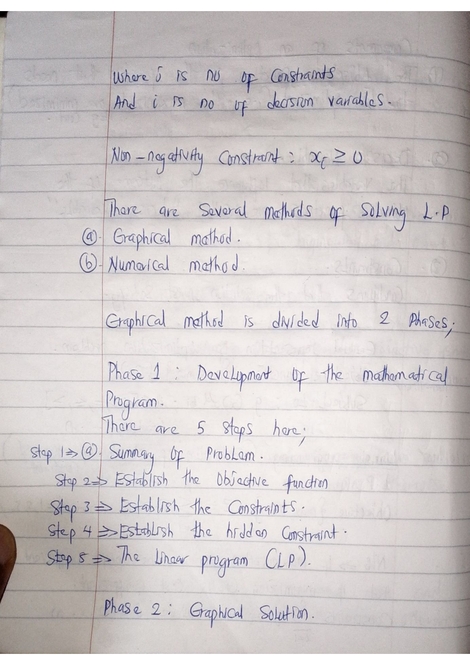 Where j is no of Constraints
And i is no of decision variables.
Non-negativity Constraint : xi ≥ 0
There are Several methods of Solving L.P
(a) Graphical method.
(b) Numerical method.
Graphical method is divided into 2 Phases;
Phase 1 : Development of the mathematical
Program.
There are 5 steps here;
Step 1 ⇒ (a) Summary of Problem.
Step 2 ⇒ Establish the Objective function
Step 3 ⇒ Establish the Constraints.
Step 4 ⇒ Establish the hidden Constraint.
Step 5 ⇒ The Linear program (LP).
Phase 2 : Graphical Solution.